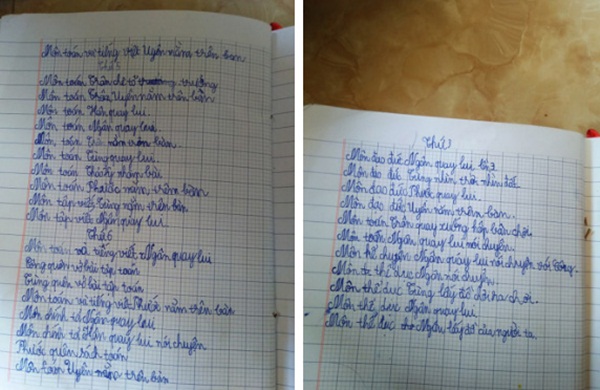 Môn toán và tiếng việt Uyển nằm trên bàn
Thứ 5
Môn toán Trân để tờ trường
Môn toán Trâu, Uyển nằm trên bàn
Môn toán Hân quay lui.
Môn toán Ngân quay lui.
Môn toán nằm trên bàn.
Môn toán Tùng quay lui.
Môn toán nháp bài
Môn toán Phước nằm trên bàn
Môn tập viết Tùng nằm trên bàn
Môn tập viết Ngân quay lui.
Thứ 6
Môn toán và tiếng việt Ngân quay lui
Công quên vở bài tập toán
Tùng quên vở bài tập toán
Môn toán và tiếng việt Phước nằm trên bàn
Môn chính tả Ngân quay lui
Môn chính tả Hân quay lui nói chuyện
Phước quên sách toán
Môn toán Uyển nằm trên bàn
Thứ
Môn đạo đức Ngân quay lui lần 3
Môn đạo đức Tùng nhìn trời nhìn đất.
Môn đạo đức Phước quay lui.
Môn đạo đức Uyển nằm trên bàn.
Môn toán Trân quay xuống hộp bàn chơi.
Môn toán Ngân quay lui nói chuyện.
Môn kể chuyện Ngân quay lui nói chuyện với Công.
Môn thể dục Ngân nói chuyện.
Môn thể dục Tùng lấy đồ chơi ra chơi.
Môn thể dục Ngân quay lui
Môn thể dục Ngân lấy đồ của người ta.